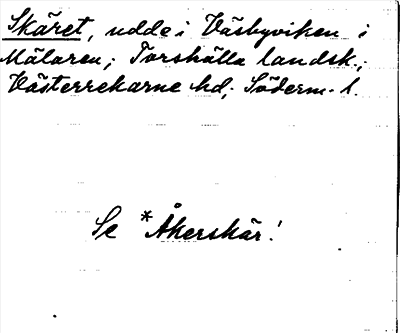 Skäret, udde i Väsbyviken i
Mälaren; Torshälla landsk.;
Västerrekarne hd; Söderm. l.
Se *Åkerskär!